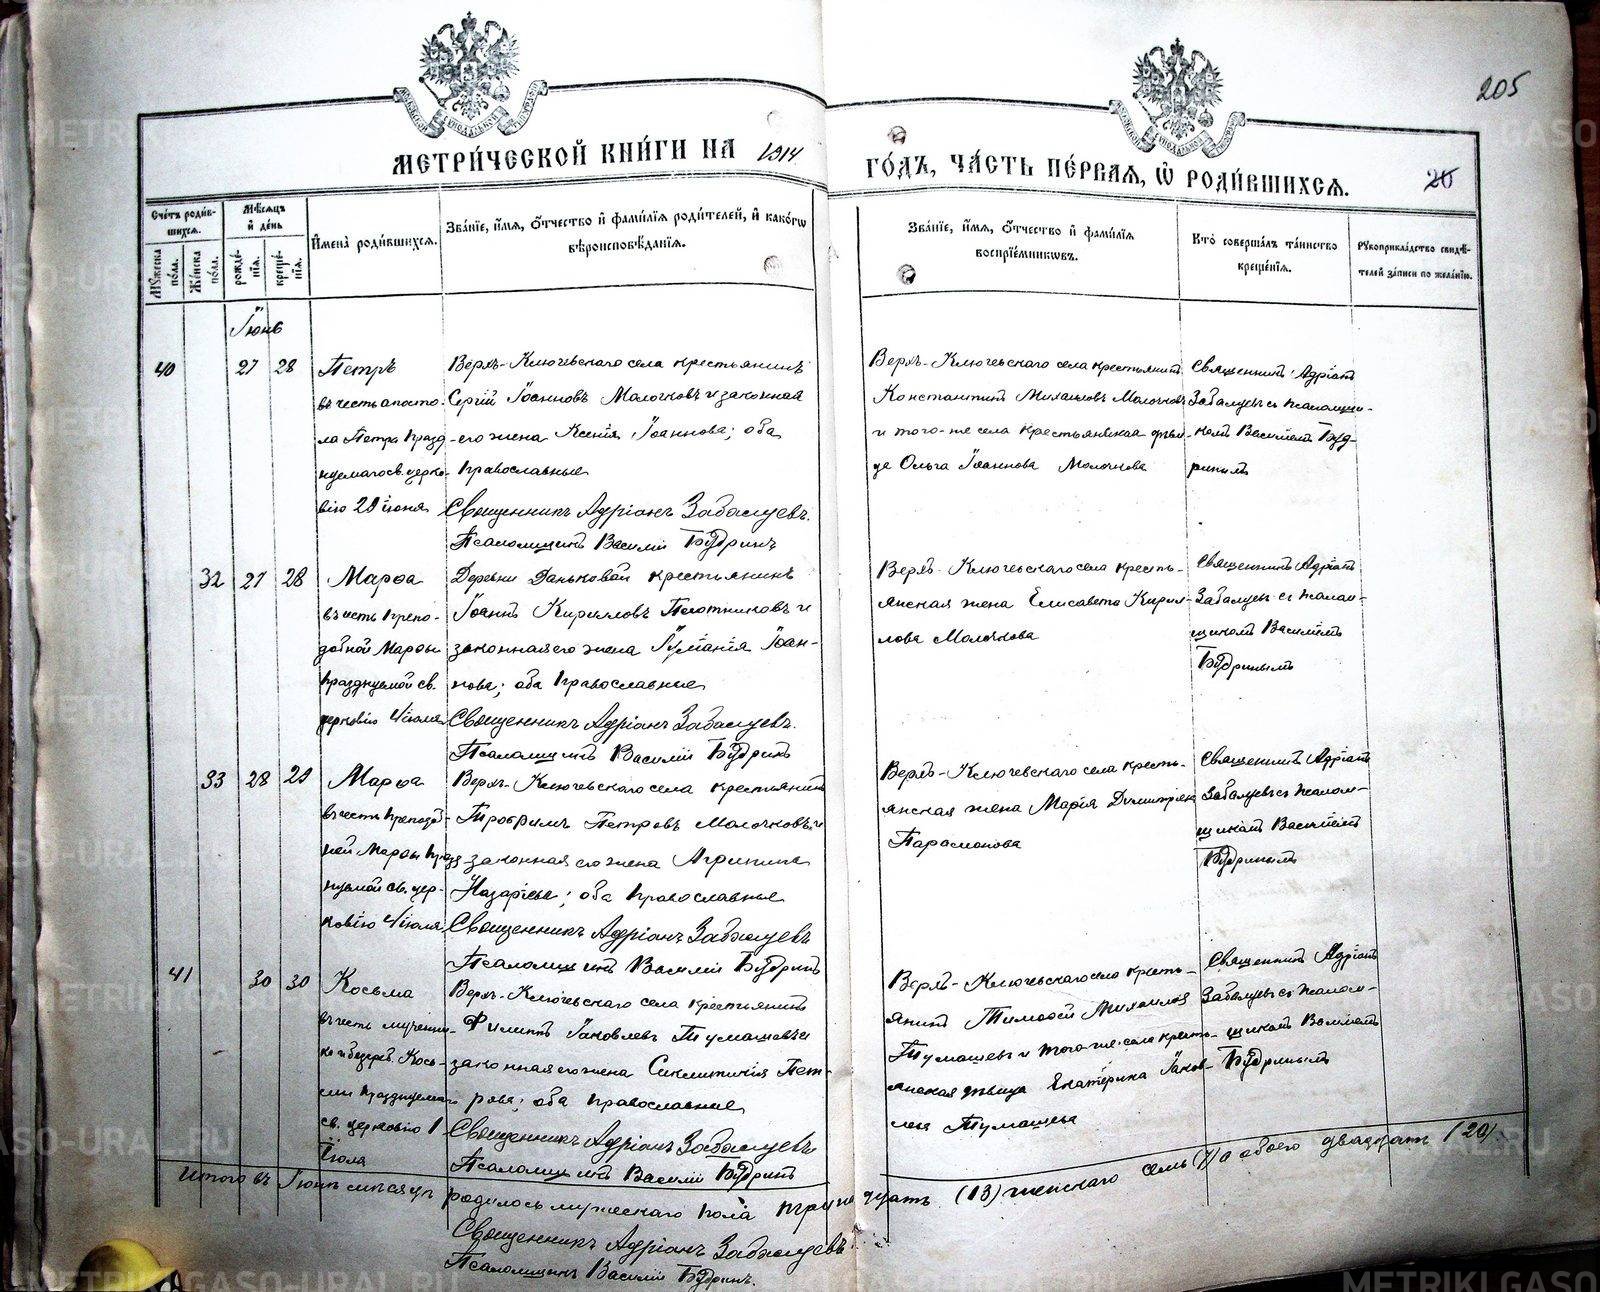 205
МЕТРИ́ЧЕСКОЙ КНИ́ГИ НА 1914 ГО́ДЪ, ЧА́СТЬ ПЕ́РВАЯ, Ѽ РОДИ́ВШИХСЯ.
26
Сче́тъ роди́в-
шихся.
Мѣ́сяцъ
и҆ де́нь
И҆мена̀ роди́вшихся.
Зва́нїе, и҆́мя, ѻ҆́тчество и҆ фами́лїя роди́телей, и҆ како́гѡ
вѣроисповѣ́данїя.
Зва́нїе, и҆́мя, ѻ҆́тчество и҆ фами́лїя
воспрїе́мникѡвъ.
Кто̀ соверша́лъ та́инство
креще́нїя.
Рꙋкоприкла́дство свидѣ́-
телей за́писи по жела́нїю.
Мꙋ́жеска
по́ла.
Же́нска
по́ла.
рожде́-
нїя.
креще́-
нїя.
Іюнь
40 27 28
Петръ
въ честь апосто-
ла Петра празд-
нуемаго св. церко-
вію 29 іюня
Верхъ-Ключевскаго села крестьянинъ
Сергій Іоанновъ Молочковъ и законная
его жена Ксенія Іоаннова; оба
православные
Священникъ Адріанъ Забалуевъ.
Псаломщикъ Василій Будринъ
Верхъ-Ключевскаго села крестьянинъ
Константинъ Михаиловъ Молочковъ
и того-же села крестьянская дѣви-
ца Ольга Іоаннова Молочкова
Священникъ Адріанъ
Забалуевъ съ псаломщи-
комъ Василіемъ Буд-
ринымъ
32 27 28
Марѳа
въ честь препо-
добной Марѳы
празднуемой св.
церковію 4 іюля
Деревни Даньковой крестьянинъ
Іоаннъ Кирилловъ Плотниковъ и
законная его жена Іуліанія Іоан-
нова; оба православные
Священникъ Адріанъ Забалуевъ.
Псаломщикъ Василій Будринъ
Верхъ-Ключевскаго села кресть-
янская жена Елисавета Кирил-
лова Молочкова
Священникъ Адріанъ
Забалуевъ съ псалом-
щикомъ Василіемъ
Будринымъ
33 28 29
Марѳа
въ честь преподоб-
ной Марѳы празд-
нуемой св. цер-
ковію 4 іюля
Верхъ-Ключевскаго села крестьянинъ
Трофимъ Петровъ Молочковъ и
законная его жена Агрипина
Назарьева; оба православные
Священникъ Адріанъ Забалуевъ
Псаломщикъ Василій Будринъ
Верхъ-Ключевскаго села кресть-
янская жена Марія Димитріева
Парамонова
Священникъ Адріанъ
Забалуевъ съ псалом-
щикомъ Василіемъ
Будринымъ
41 30 30
Косьма
въ честь мучени-
ка и безсреб. Кось-
мы празднуемаго
св. церковію 1
Іюля
Верхъ-Ключевскаго села крестьянинъ
Филиппъ Іаковлевъ Тумашевъ и
законная его жена Синклитикія Пет-
рова; оба православные
Священникъ Адріанъ Забалуевъ
Псаломщикъ Василій Будринъ
Верхъ-Ключевскаго села кресть-
янинъ Тимоѳей Михаиловъ
Тумашевъ и того-же села кресть-
янская дѣвица Екатерина Іаков-
лева Тумашева
Священникъ Адріанъ
Забалуевъ съ псалом-
щикомъ Василіемъ
Будринымъ
Итого въ Іюнѣ мѣсяцѣ родилось мужескаго пола тринадцать (13) женскаго семь (7) а обоего двадцать (20).
Священникъ Адріанъ Забалуевъ
Псаломщикъ Василій Будринъ.
METRIKI.GASO-URAL.RU